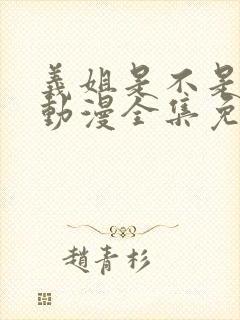 義姐是不是
動漫全集免
趙青杉